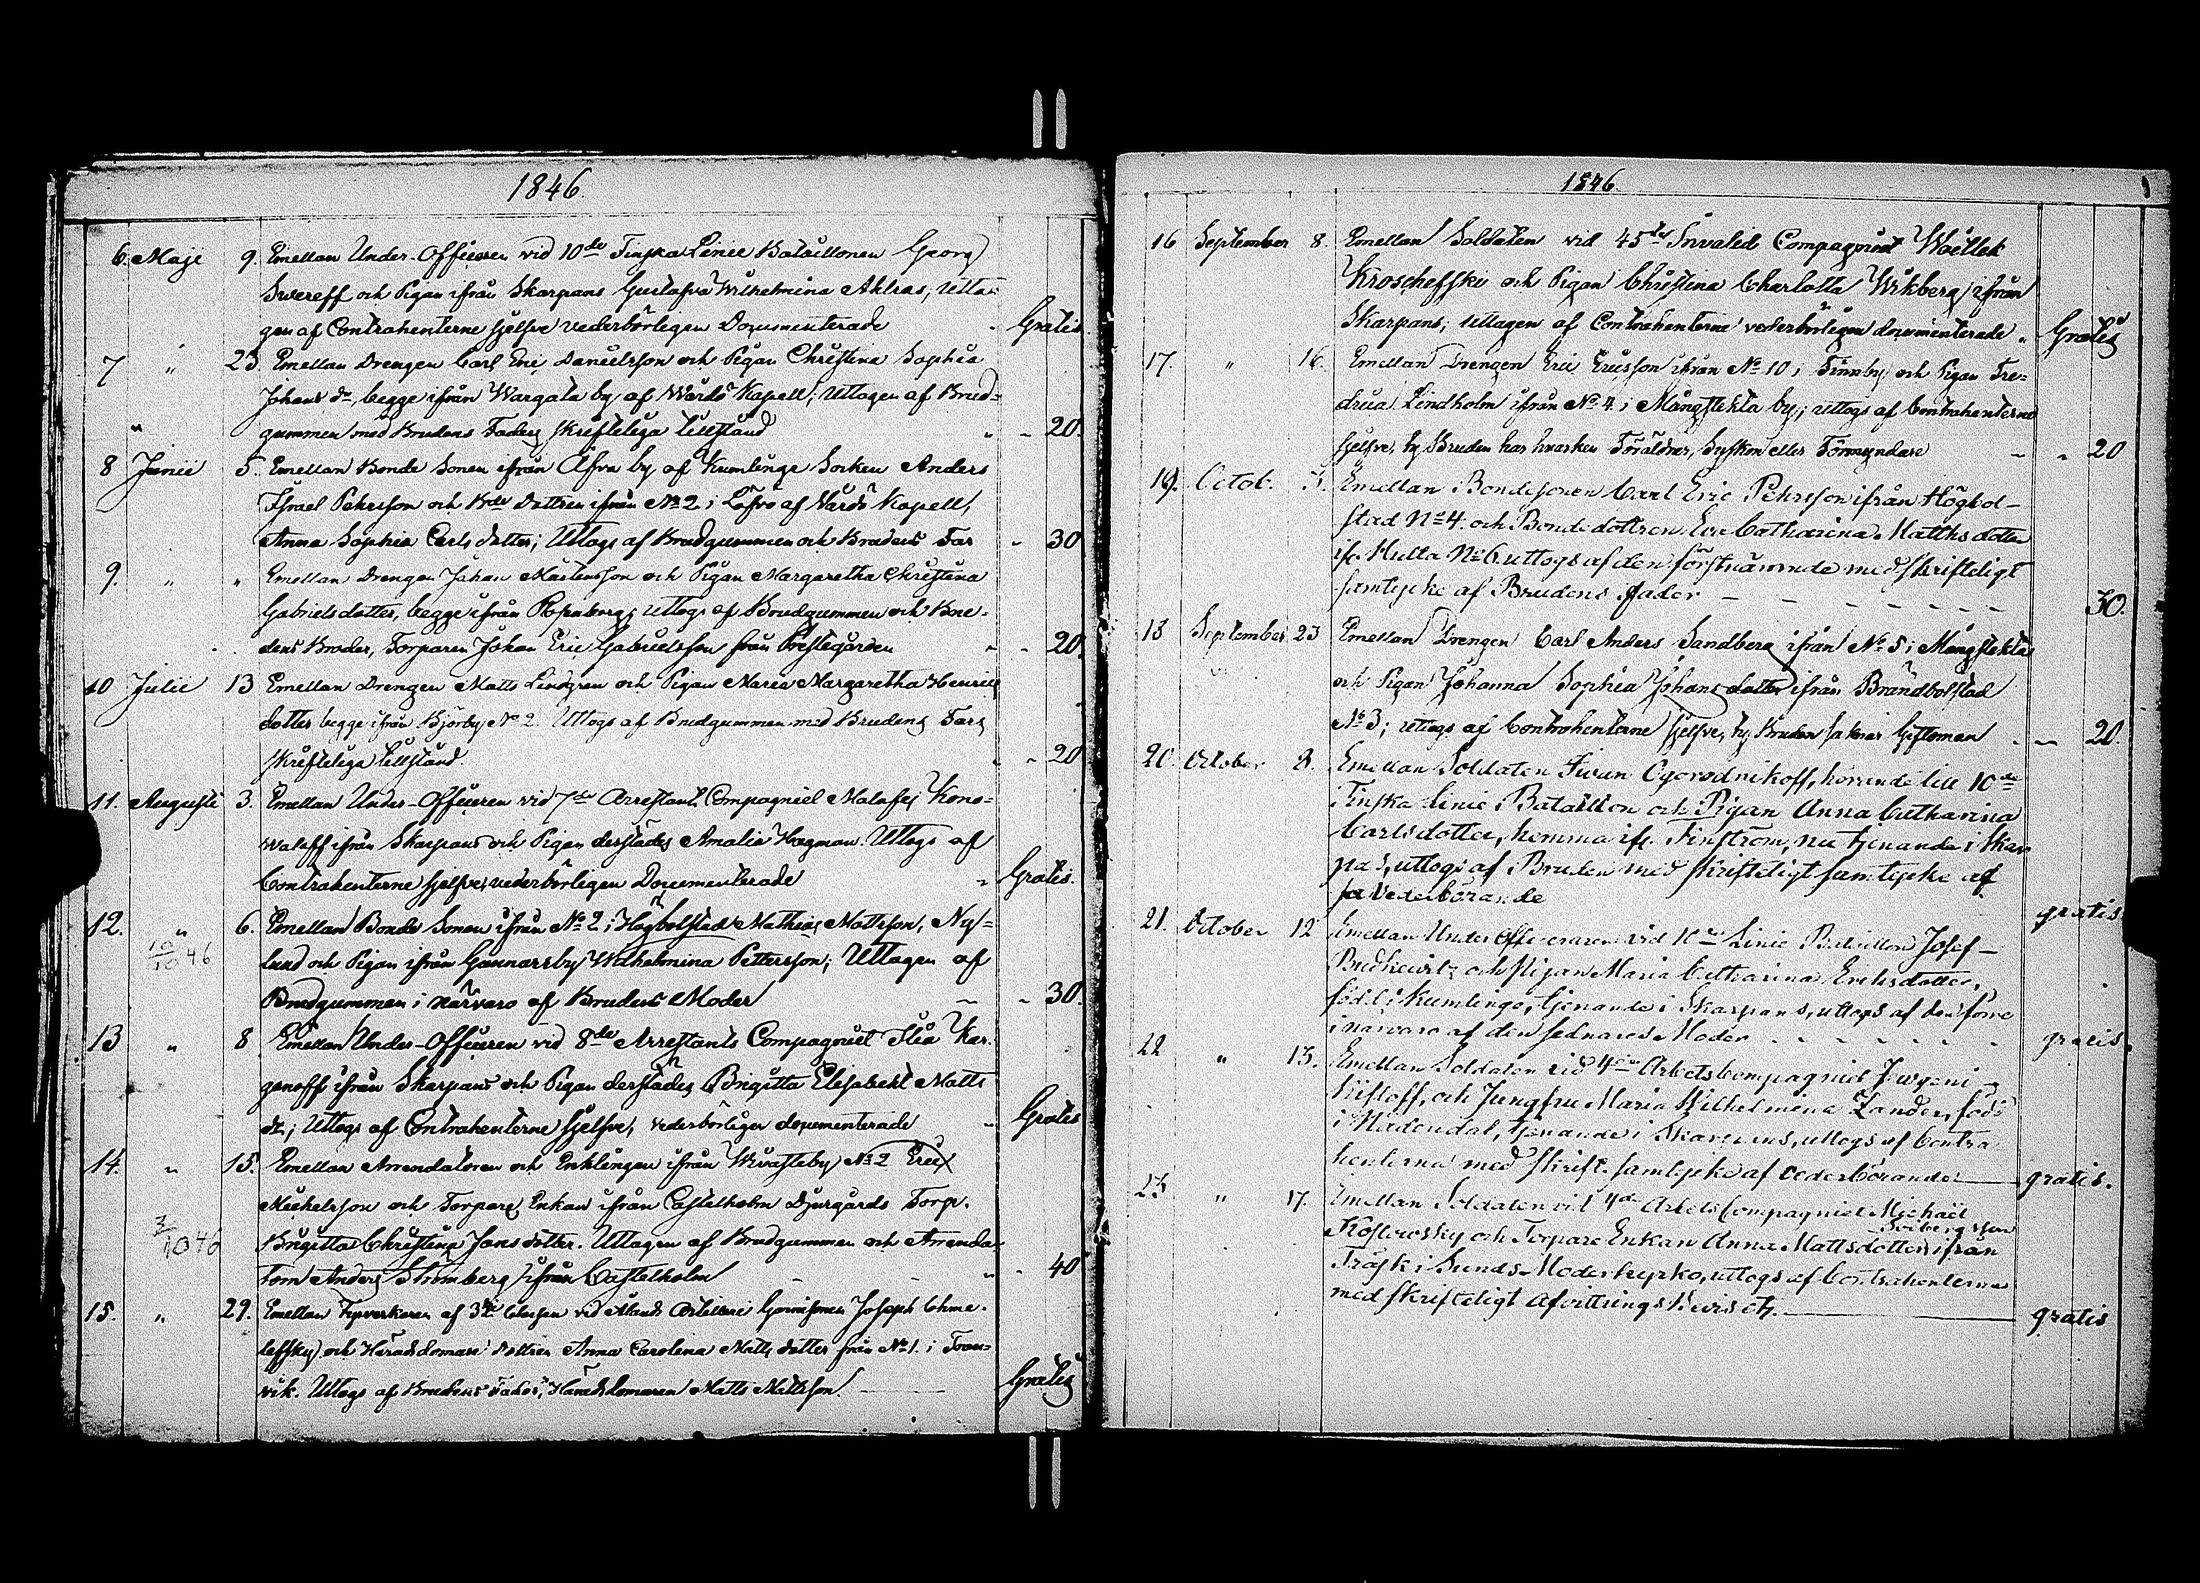 1846.
6. Maji 9. Emellan Under-Officeren vid 10de Finska Linee Bataillonen Georg
Swereff och Pigan ifrån Skarpans Gustafva Wilhelmina Ahlras, Utta-
gen af Contrahenterne sjelfve vederbörligen Documenterade - Gratis
7 " 23 Emellan Drengen Carl Eric Danielsson och Pigan Christina Sophia
Johans dr, begge ifrån Wargata by af Wårdö Kapell; Uttagen af Brud-
gummen med Brudens Faders skrifteliga tillstånd " - 20.
8 Junii 5. Emellan Bonde Sonen ifrån Afva by af Kumlinge Socken Anders
Israel Pehrsson och Bde Dottren ifrån No 2 i Löfvö af Vårdö Kapell,
Anna Sophia Carls dotter; Uttogs af Brudgummen och Brudens Far - 30
9. " " Emellan Drengen Johan Mårtensson och Pigan Margaretha Christina
Gabriels dotter, begge ifrån Rosenberg; Uttogs af Brudgummen och Bru-
dens Broder, Torparen Johan Eric Gabrielsson från Prestegården " - 20.
10 Julii 13 Emellan Drengen Matts Lindgren och Pigan Maria Margaretha Henrics
dotter begge ifrån Björby No 2. Uttogs af Brudgummen med Brudens Fars
skriftliga tillstånd. - 20
11. Augusti 3. Emellan Under-Officeren vid 7de Arrestant Compagniet Malafej Kono-
waloff ifrån Skarpans och Pigan derstädes Amalia Hagman. Uttogs af
Contrahenterne sjelfve, vederbörligen Documenterade - Gratis.
12. " 6. Emellan Bonde Sonen ifrån No 2 i Högbolstad Mathias Mattsson, Ny-
lund och Pigan ifrån Gunnarsby Wilhelmina Pettersson; Uttagen af
10/10 46
Brudgummen i närvaro af Brudens Moder - - 30.
13 " 8 Emellan Under-Officeren vid 8de Arrestants Compagniet Ilia Kar-
ganoff ifrån Skarpans och Pigan derstädes Brigitta Elisabeht Matts
dr; Uttogs af Contrahenterne sjelfve, vederbörligen documenterade " Gratis
14. " 15. Emellan Arrendatoren och Enklingen ifrån Kvasteby No 2 Eric
Michelsson och Torpare Enkan ifrån Castelholm Djurgårds Torp.
3/10 46
Brigitta Christina Jans dotter. Uttagen af Brudgumman och Arrenda-
torn Anders Strömberg ifrån Castelholm - - " - 40
15. " 29. Emellan Fyrverkaren af 3de Classen vid Ålands Artilleri Garnisonen Joseph Chme-
leffsky och Härads domare dottren Anna Carolina Matts dotter från No 1. i Tran-
vik. Uttogs af Brudens Fader, Häradsdomaren Matts Mattsson. Gratis
1846.
16 September 8. Emellan Soldaten vid 45te Invalid Compagniet Woitlek
Kroscheffski och Pigan Christina Charlotta Wikberg ifrån
Skarpans, Uttagen af Contrahenterne vederbörligen documenterade " Gratis
17. " 16. Emellan Drengen Eric Ericsson ifrån No 10 i Finnby och Pigan Fre-
drica Lindholm ifrån No 4 i Mångstekta by; uttogs af Contrahenterne
sjelfve, ty Bruden har hvarken Föräldrar, Syskon eller Förmyndare - " 20
19. Octob. 5. Emellan Bondesonen Carl Eric Pehrsson ifrån Högbol-
stad No 4. och Bonde dottren Eva Catharina Matths dotter
ifr. Hulta No 6. uttogs af den förstnämnde med skrifteligt
samtycke af Brudens fader - - - - - 30.
18 September 23 Emellan Drengen Carl Anders Sandberg ifrån No 5 i Mångstekta
och Pigan Johanna Sophia Johans dotter ifrån Brändbolstad
No 3; uttogs af Contrahenterne sjelfve, ty Bruden saknar Giftoman - 20.
20. October 8. Emellan Soldaten Iwan Ogorodnikoff, hörande till 10de
Finska Linie Bataillon och Pigan Anna Catharina
Carlsdotter, hemma ifr. Finström, nu tjenande i Skar-
pans, uttogs af Bruden med skrifteligt samtycke af
sa vederbörande gratis
21. October 12 Emellan Under Officeraren vid 10de Linie Bataillon Josef
Budkewitz och Pigan Maria Catharina Ericsdotter,
född i Kumlinge, tjenande i Skarpans, uttogs af den förre
i närvaro af den sednares Moder - - - - - gratis
22 " 15. Emellan Soldaten vid 4de Arbets Compagniet Jewgeni
Kisloff, och Jungfru Maria Wilhelmina Zander, född
i Nådendal, tjenande i Skarpans, uttogs af Contra
henterna med skrift. samtycke af vederbörande gratis.
23 " 17. Emellan Soldaten vid 4de Arbets Compagniet Michael
Koslowsky och Torpare Enkan Anna Mattsdotter ifrån
Träsk i Sunds Moderkyrko, uttogs af Contrahenterna
med skrifteligt Afvittrings Bevis etc. gratis